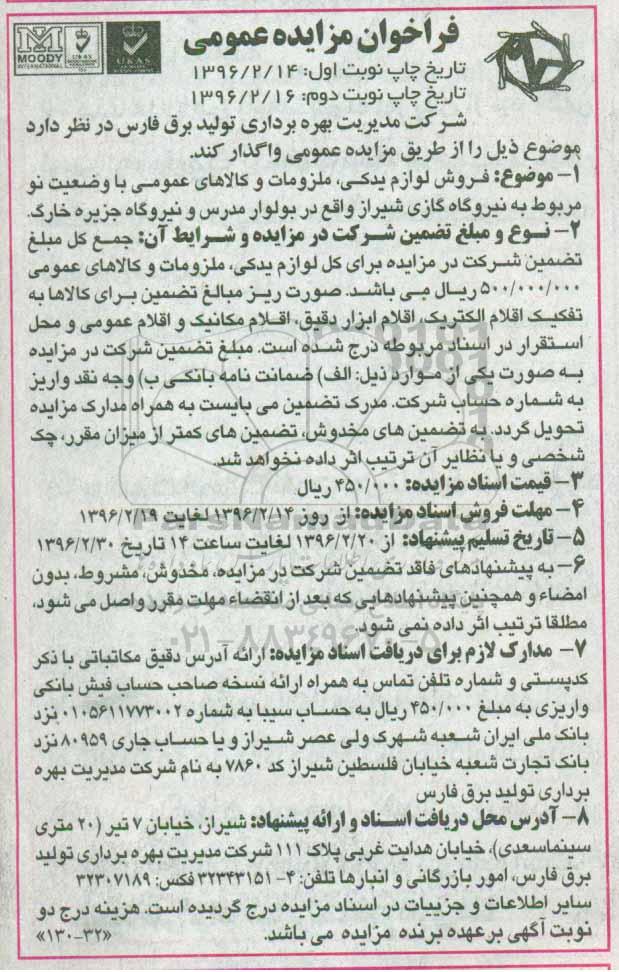 فراخوان مزایده عمومی
MOODY
INTERNATIONAL
UKAS
UKAS
تاریخ چاپ نوبت اول: ۱۳۹۶/۲/۱۴
تاریخ چاپ نوبت دوم: ۱۳۹۶/۲/۱۶
شرکت مدیریت بهره برداری تولید برق فارس در نظر دارد
موضوع ذیل را از طریق مزایده عمومی واگذار کند.
۱- موضوع: فروش لوازم یدکی، ملزومات و کالاهای عمومی با وضعیت نو
مربوط به نیروگاه گازی شیراز واقع در بولوار مدرس و نیروگاه جزیره خارگ.
۲- نوع و مبلغ تضمین شرکت در مزایده و شرایط آن: جمع کل مبلغ
تضمین شرکت در مزایده برای کل لوازم یدکی، ملزومات و کالاهای عمومی
۵۰۰/۰۰۰/۰۰۰ ریال می باشد. صورت ریز مبالغ تضمین برای کالاها به
تفکیک اقلام الکتریک، اقلام ابزار دقیق، اقلام مکانیک و اقلام عمومی و محل
استقرار در اسناد مربوطه درج شده است. مبلغ تضمین شرکت در مزایده
به صورت یکی از موارد ذیل: الف) ضمانت نامه بانکی ب) وجه نقد واریز
به شماره حساب شرکت. مدرک تضمین می بایست به همراه مدارک مزایده
تحویل گردد. به تضمین های مخدوش، تضمین های کمتر از میزان مقرر، چک
شخصی و یا نظایر آن ترتیب اثر داده نخواهد شد.
۳- قیمت اسناد مزایده: ۴۵۰/۰۰۰ ریال
۴- مهلت فروش اسناد مزایده: از روز ۱۳۹۶/۲/۱۴ لغایت ۱۳۹۶/۲/۱۹
۵- تاریخ تسلیم پیشنهاد: از ۱۳۹۶/۲/۲۰ لغایت ساعت ۱۴ تاریخ ۱۳۹۶/۲/۳۰
۶- به پیشنهادهای فاقد تضمین شرکت در مزایده، مخدوش، مشروط، بدون
امضاء و همچنین پیشنهادهایی که بعد از انقضاء مهلت مقرر واصل می شود،
مطلقا ترتیب اثر داده نمی شود.
۰۲۱-۸۸۳۴۹۶۷۰-۵
۷- مدارک لازم برای دریافت اسناد مزایده: ارائه آدرس دقیق مکاتباتی با ذکر
کدپستی و شماره تلفن تماس به همراه ارائه نسخه صاحب حساب فیش بانکی
واریزی به مبلغ ۴۵۰/۰۰۰ ریال به حساب سیبا به شماره ۰۱۰۵۶۱۱۷۷۳۰۰۲ نزد
بانک ملی ایران شعبه شهرک ولی عصر شیراز و یا حساب جاری ۸۰۹۵۹ نزد
بانک تجارت شعبه خیابان فلسطین شیراز کد ۷۸۶۰ به نام شرکت مدیریت بهره
برداری تولید برق فارس
۸- آدرس محل دریافت اسناد و ارائه پیشنهاد: شیراز، خیابان ۷ تیر (۲۰ متری
سینماسعدی)، خیابان هدایت غربی پلاک ۱۱۱ شرکت مدیریت بهره برداری تولید
برق فارس، امور بازرگانی و انبارها تلفن: ۴-۳۲۳۴۳۱۵۱ فکس: ۳۲۳۰۷۱۸۹
سایر اطلاعات و جزییات در اسناد مزایده درج گردیده است. هزینه درج دو
نوبت آگهی برعهده برنده مزایده می باشد. «۱۳۰-۳۲»